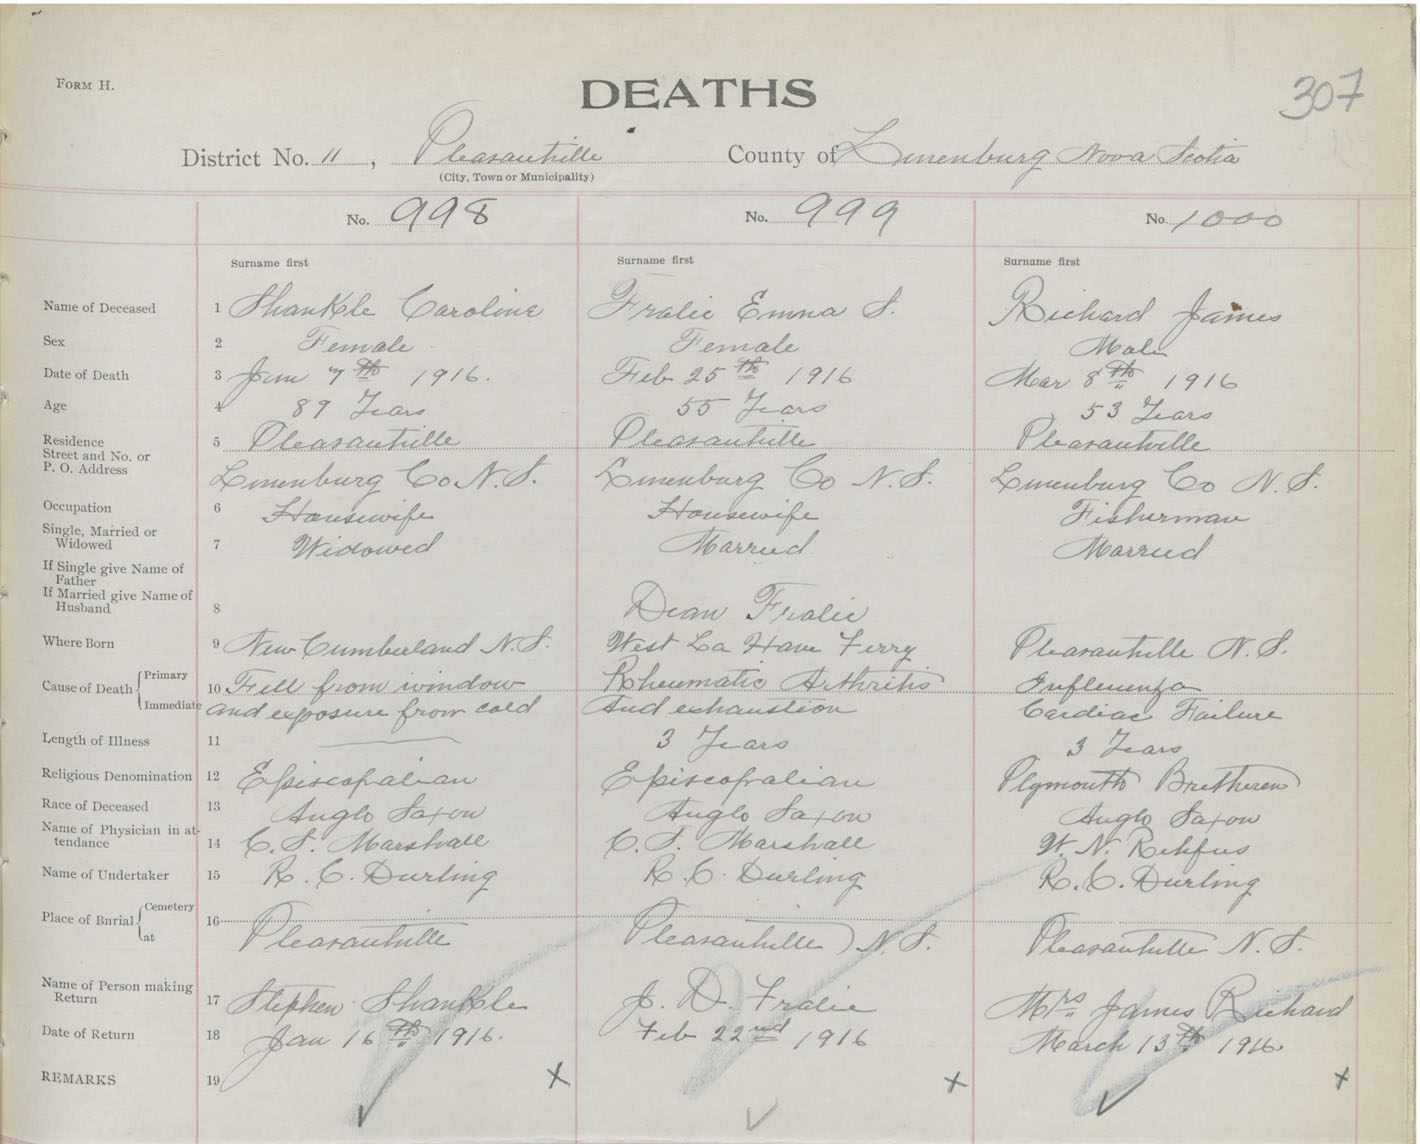 FORM H.
DEATHS
307
District No. 11, Pleasantville County of Lunenburg Nova Scotia
(City, Town or Municipality)
No. 998 No. 999 No. 1000
Surname first Surname first Surname first
Name of Deceased 1 Shankle Caroline Fralic Emma S. Richard James
Sex 2 Female Female Male
Date of Death 3 Jan 7th 1916. Feb 25th 1916 Mar 8th 1916
Age 4 89 Years 55 Years 53 Years
Residence 5 Pleasantville Pleasantville Pleasantville
Street and No. or
P. O. Address Lunenburg Co N.S. Lunenburg Co N.S. Lunenburg Co N.S.
Occupation 6 Housewife Housewife Fisherman
Single, Married or
Widowed 7 Widowed Married Married
If Single give Name of
Father
If Married give Name of
Husband 8 Dean Fralic
Where Born 9 New Cumberland N.S. West La Have Ferry Pleasantville N.S.
Cause of Death Primary 10 Fell from window Rheumatic Arthritis Influenza
Immediate and exposure from cold And exhaustion Cardiac Failure
Length of Illness 11 3 Years 3 Years
Religious Denomination 12 Episcopalian Episcopalian Plymouth Bretheren
Race of Deceased 13 Anglo Saxon Anglo Saxon Anglo Saxon
Name of Physician in at-
tendance 14 C. S. Marshall C. S. Marshall W. N. Rehfus
Name of Undertaker 15 R. C. Durling R. C. Durling R. C. Durling
Place of Burial Cemetery 16
at Pleasantville Pleasantville N.S. Pleasantville N.S.
Name of Person making
Return 17 Stephen Shankle J. D. Fralic Mrs James Richard
Date of Return 18 Jan 16th 1916. Feb 22nd 1916 March 13th 1916.
REMARKS 19 x x x